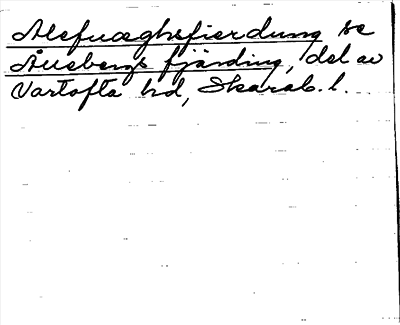 Alefwæghsfierdung se
Ållebergs fjärding, del av
Vartofta hd, Skarab. l.